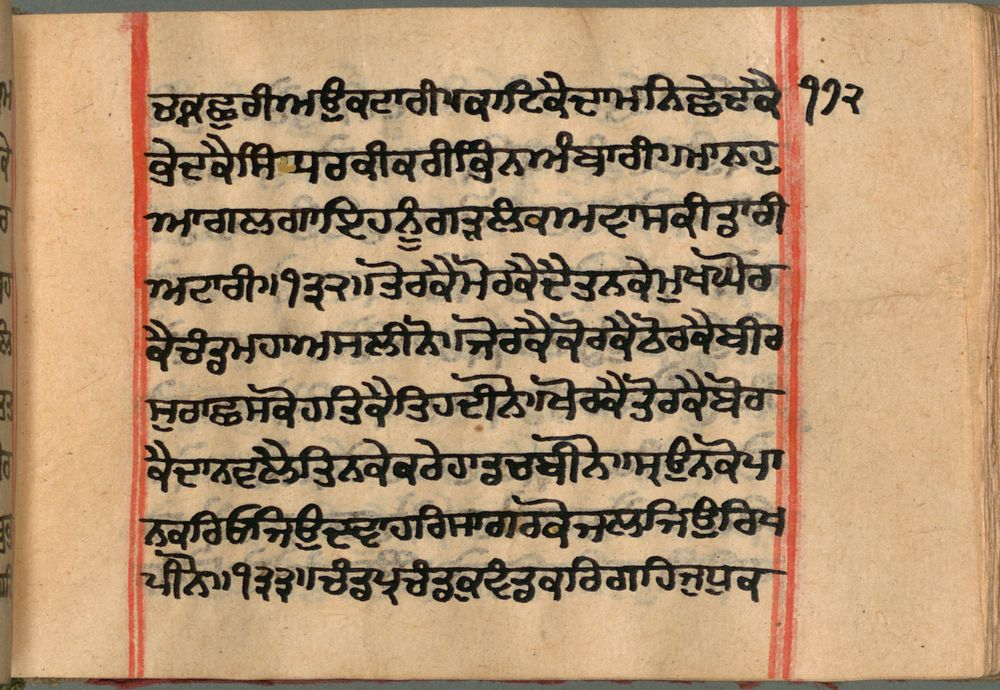 ਚਕ੍ਰ ਛੁਰੀ ਅਉ ਕਟਾਰੀ ੫ ਕਾਟਿ ਕੈ ਦਾਮਨਿ ਛੇਦ ਕੈ ੧੧੨
ਭੇਦ ਕੈ ਸਿੰਧਰ ਕੀ ਕਰੀ ਭਿੰਨ ਅੰਬਾਰੀ॥ ਮਾਨਹੁ
ਆਗ ਲਗਾਇ ਹਨੂੰ ਗੜ੍ਹ ਲੰਕ ਅਵਾਸ ਕੀ ਡਾਰੀ
ਅਟਾਰੀ॥੧੩੨॥ ਤੋਰ ਕੈ ਮੋਰ ਕੈ ਦੈਤਨ ਕੇ ਮੁਖ ਘੋਰ
ਕੈ ਚੰਡ ਮਹਾ ਅਸ ਲੀਨੋ॥ ਜੋਰ ਕੈ ਕੋਰ ਕੈ ਠੋਰ ਕੈ ਬੀਰ
ਸੁ ਰਾਛਸ ਕੋ ਹਤਿ ਕੈ ਤਿਹ ਦੀਨੋ॥ ਖੋਰ ਕੈ ਤੋਰ ਕੈ ਬੋਰ
ਕੈ ਦਾਨਵ ਲੈ ਤਿਨ ਕੇ ਕਰੇ ਹਾਡ ਚਬੀਨੋ॥ ਸ੍ਰਉਨ ਕੋ ਪਾ
ਨ ਕਰਿਓ ਜਿਉ ਦਵਾ ਹਰਿ ਸਾਗਰ ਕੋ ਜਲ ਜਿਉ ਰਿਖ
ਪੀਨੋ॥੧੩੩॥ ਚੰਡ ਪ੍ਰਚੰਡ ਕੁਵੰਡ ਕਰਿ ਗਹਿ ਜੁਧ ਕ